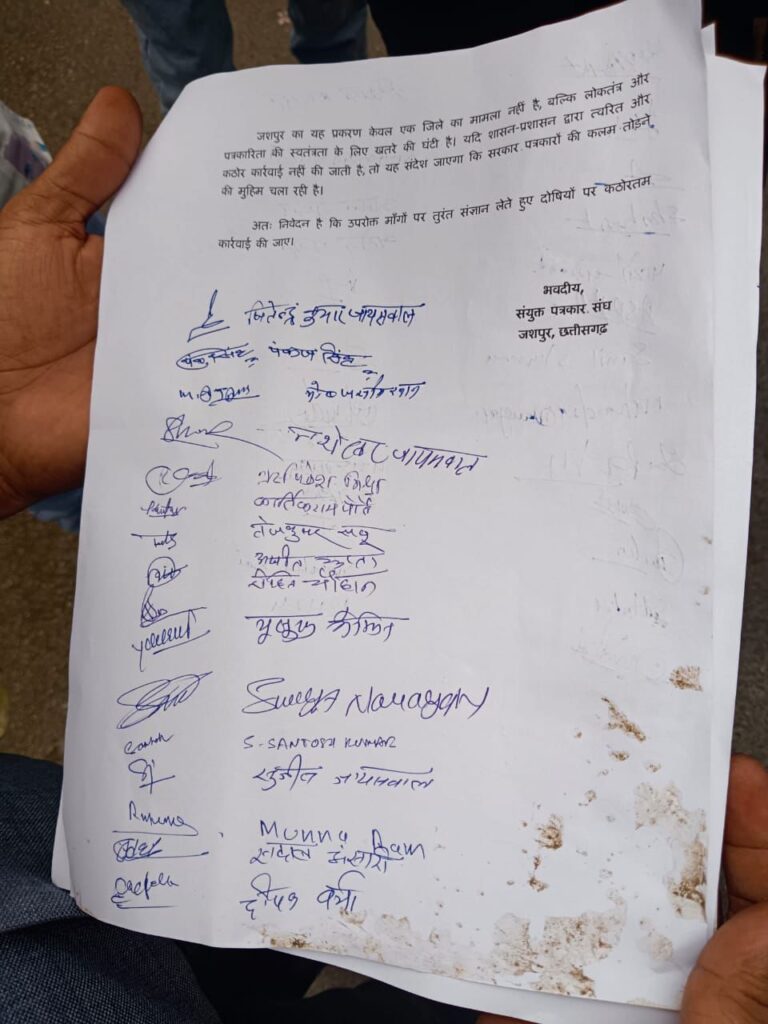 जशपुर का यह प्रकरण केवल एक जिले का मामला नहीं है, बल्कि लोकतंत्र और
पत्रकारिता की स्वतंत्रता के लिए खतरे की घंटी है। यदि शासन-प्रशासन द्वारा त्वरित और
कठोर कार्रवाई नहीं की जाती है, तो यह संदेश जाएगा कि सरकार पत्रकारों की कलम तोड़ने
की मुहिम चला रही है।
अतः निवेदन है कि उपरोक्त माँगों पर तुरंत संज्ञान लेते हुए दोषियों पर कठोरतम
कार्रवाई की जाए।
भवदीय,
संयुक्त पत्रकार संघ
जशपुर, छत्तीसगढ़
जितेन्द्र कुमार जायसवाल
पंकज सिंह
जायसवाल
मिश्रा
कार्तिकराम
तेजकुमार साहू
अजीत गुप्ता
रोहित चौहान
Surya Narayan
S-SANTOSH KUMAR
सुजीत जायसवाल
Munna Ram
अंसारी
दीपक वर्मा